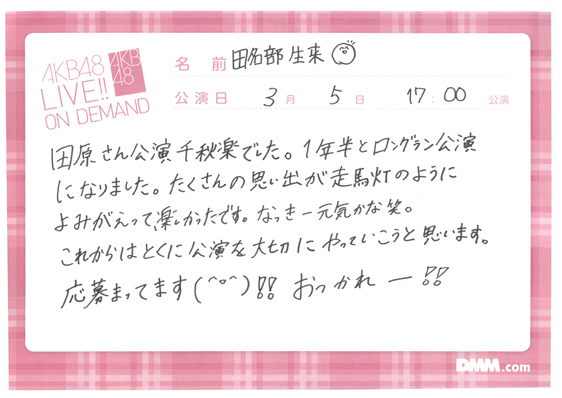 AKB48
LIVE!!
ON DEMAND
AKB
48
名前 田名部生来
公演日 3月 5日 17:00 公演
田原さん公演千秋楽でした。1年半とロングラン公演
になりました。たくさんの思い出が走馬灯のように
よみがえって楽しかったです。なっきー元気かな笑。
これからはとくに公演を大切にやっていこうと思います。
応募まってます(^o^)!! おつかれー!!
DMM.com